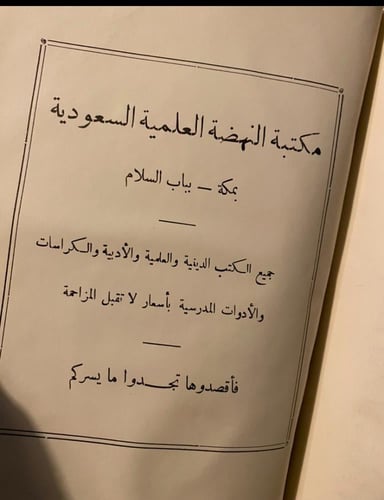 مكتبة النهضة العلمية السعودية
بمكة — بباب السلام
جميع الكتب الدينية والعلمية والأدبية والكراسات
والأدوات المدرسية بأسعار لا تقبل المزاحمة
فأقصدوها تجدوا ما يسركم